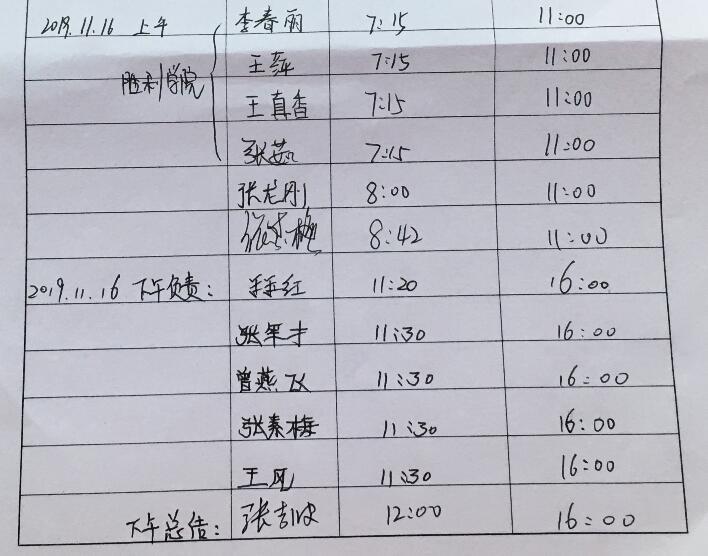 2019.11.16 上午 李春丽 7:15 11:00
胜利学院 王萍 7:15 11:00
王真香 7:15 11:00
张茹 7:15 11:00
张龙刚 8:00 11:00
梅 8:42 11:00
2019.11.16 下午负责: 红 11:20 16:00
张军才 11:30 16:00
曾燕飞 11:30 16:00
张素梅 11:30 16:00
王凤 11:30 16:00
下午总结: 张吉波 12:00 16:00